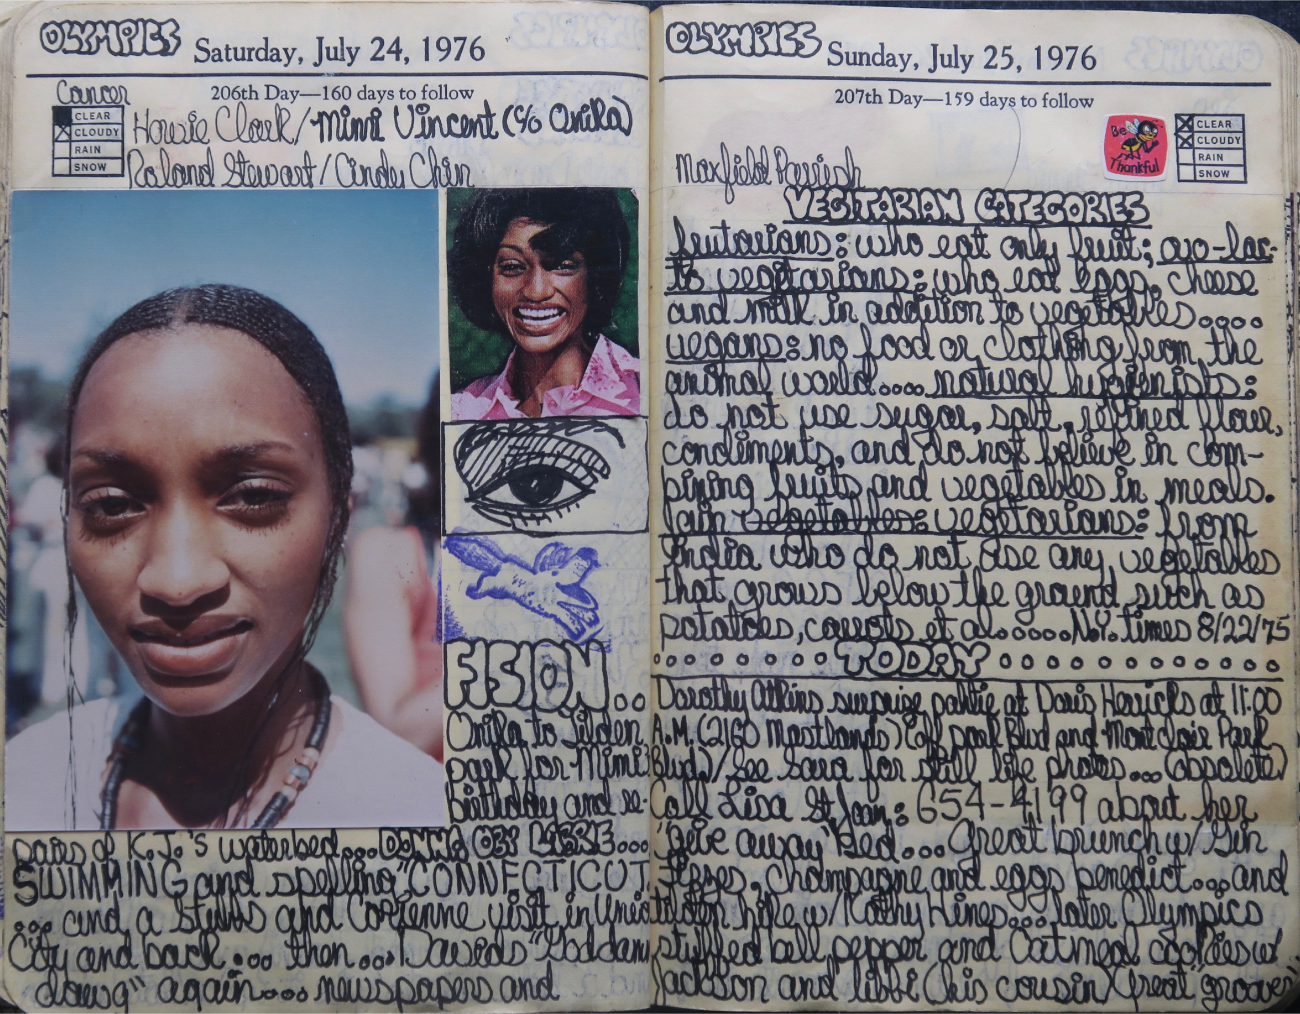 OLYMPICS Saturday, July 24, 1976
206th Day—160 days to follow
Cancer
CLEAR
CLOUDY
RAIN
SNOW
Howie Clark/Mimi Vincent (c/o Onika)
Roland Stewart/Cindy Chin
FISION..
Onika to Tilden
park for Mimi's
birthday and re-
pairs of K.J.'s waterbed...DONNA OBY LASSIE...
SWIMMING and spelling "CONNECTICUT
... and a Stubbs and Corienne visit in Union
City and back... then... Davids "Goddamn
dawg" again... newspapers and
OLYMPICS Sunday, July 25, 1976
207th Day—159 days to follow
Be
Thankful
CLEAR
CLOUDY
RAIN
SNOW
Maxfield Parrish
VEGITARIAN CATEGORIES
frutarians: who eat only fruit; ovo-lac-
to vegitarians: who eat eggs, cheese
and milk in addition to vegetables....
vegans: no food or clothing from the
animal world.... natural hygienists:
do not use sugar, salt, refined flour,
condiments, and do not believe in com-
bining fruits and vegetables in meals.
Jain vegetables: vegetarians: from
India who do not use any vegetables
that grows below the ground such as
potatoes, carrots et al.....N.Y. times 8/22/75
TODAY
Dorothy Atkins surprise pahtie at Doris Herricks at 11:00
A.M. (2160 Mastlands) (off park Blvd and Montclair Park
Blvd)/See Sara for still life photos... (obsolete)
Call Lisa St. Jean: 654-4199 about her
"give away" Bed... Great brunch w/Gin
Fizzes, champagne and eggs benedict... and
tilden hike w/Kathy Hines... later Olympics
stuffed bell pepper and Oatmeal cookies w/
Jackson and libbi (his cousin) Great "grooves"